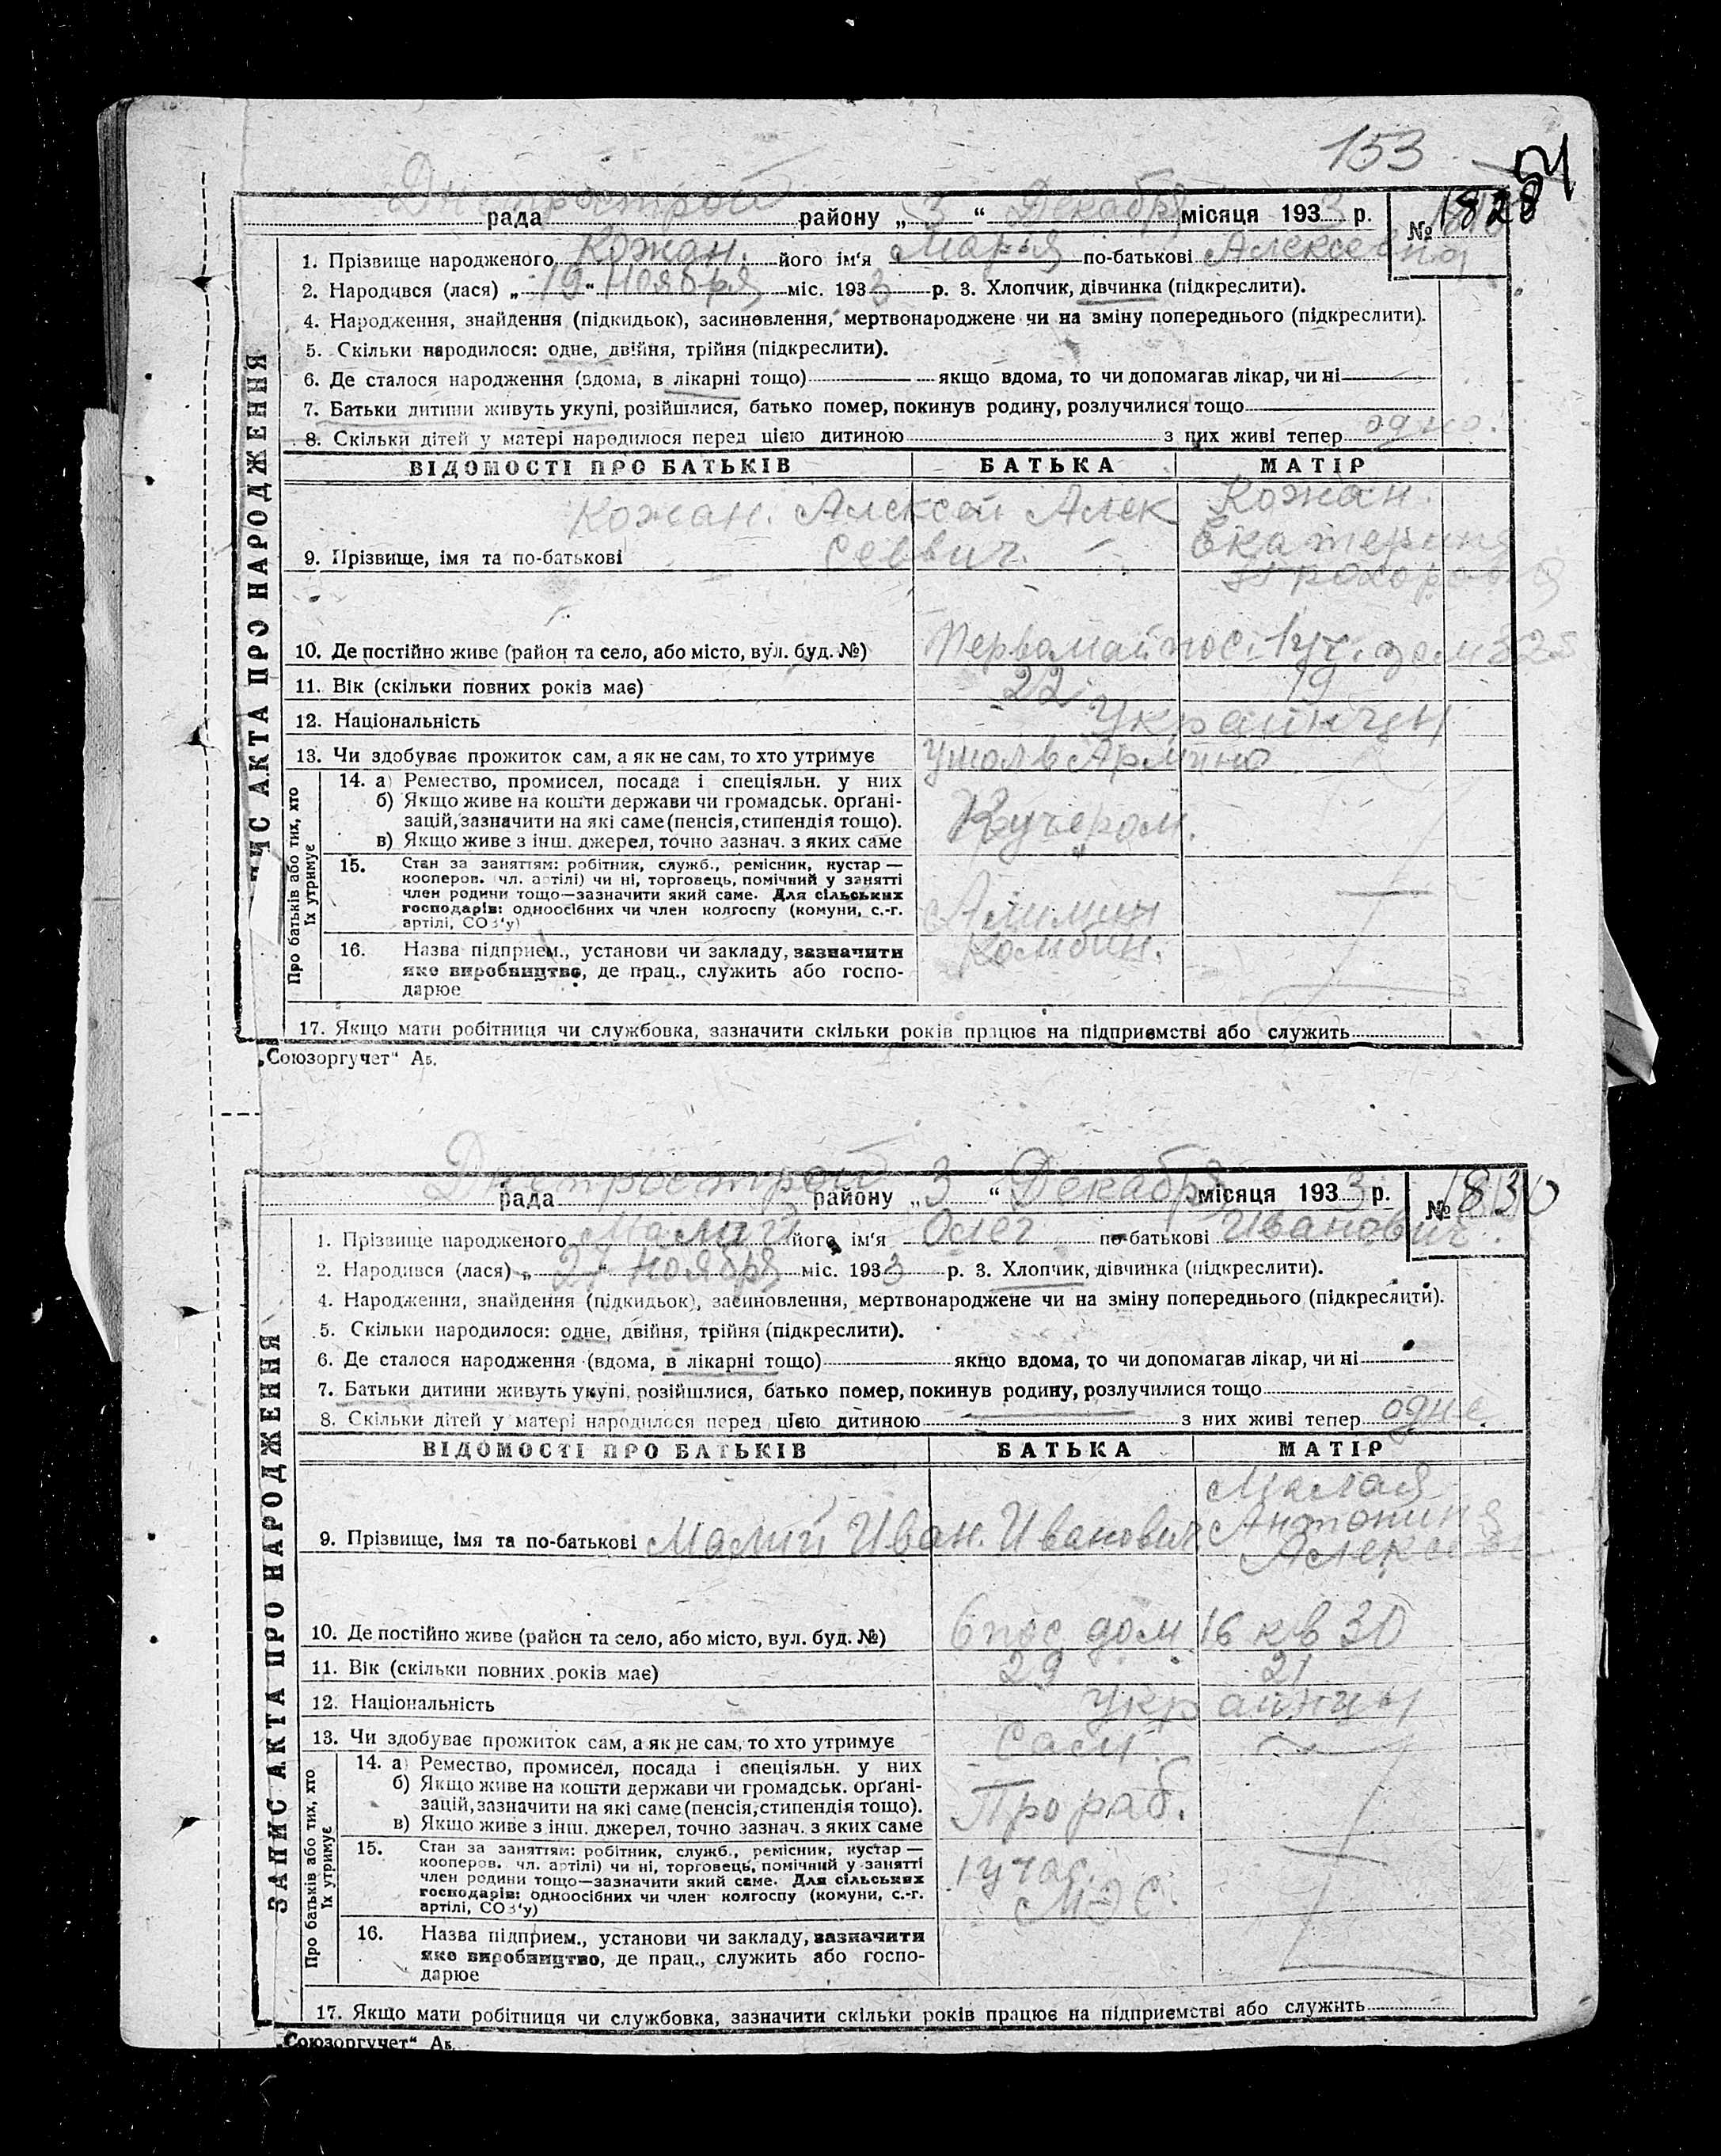 153
54
Днепрострой
рада района „ 3 “ Декабря місяця 1933 р. № 1828
1. Прізвище народженого Кожан. його ім'я Марья по-батькові Алексеевна
2. Народився (лася) „ 19 “ Ноября міс. 1933 р. 3. Хлопчик, дівчинка (підкреслити).
4. Народження, знайдення (підкидьок), засиновлення, мертвонароджене чи на зміну попереднього (підкреслити).
5. Скільки народилося: одне, двійня, трійня (підкреслити).
6. Де сталося народження (вдома, в лікарні тощо) якщо вдома, то чи допомагав лікар, чи ні
7. Батьки дитини живуть укупі, розійшлися, батько помер, покинув родину, розлучилися тощо
8. Скільки дітей у матері народилося перед цією дитиною з них живі тепер одно.
ВІДОМОСТІ ПРО БАТЬКІВ БАТЬКА МАТІР
Кожан. Алексей Алек Кожан.
9. Прізвище, імя та по-батькові сеевич. Екатерина
Прохоровна
10. Де постійно живе (район та село, або місто, вул. буд. №) Первомай пос. 1 уч. дом 325
11. Вік (скільки повних років має) 22 19
12. Національність Украинцы
13. Чи здобуває прожиток сам, а як не сам, то хто утримує ушол в Армию
14. а) Ремество, промисел, посада і спеціяльн. у них
б) Якщо живе на кошти держави чи громадськ. орґані-
зацій, зазначити на які саме (пенсія, стипендія тощо).
в) Якщо живе з інш. джерел, точно зазнач. з яких саме
Кучером.
15. Стан за заняттям: робітник, служб., ремісник, кустар —
кооперов. чл. артілі) чи ні, торговець, помічний у занятті
член родини тощо—зазначити який саме. Для сільських
господарів: одноосібних чи член колгоспу (комуни, с.-г.
артілі, СОЗ'у)
Алимин
Комбин.
16. Назва підприєм., установи чи закладу, зазначити
яке виробництво, де прац., служить або госпо-
дарює
17. Якщо мати робітниця чи службовка, зазначити скільки років працює на підприємстві або служить
Про батьків або тих, хто
їх утримує
ИС АКТА ПРО НАРОДЖЕННЯ
„Союзоргучет“ Аб.
Днепрострой
рада району „ 3 “ Декабря місяця 1933 р. № 1830
1. Прізвище народженого Малий його ім'я Олег по-батькові Иванович.
2. Народився (лася) „ 27 “ Ноября міс. 1933 р. 3. Хлопчик, дівчинка (підкреслити).
4. Народження, знайдення (підкидьок), засиновлення, мертвонароджене чи на зміну попереднього (підкреслити).
5. Скільки народилося: одне, двійня, трійня (підкреслити).
6. Де сталося народження (вдома, в лікарні тощо) якщо вдома, то чи допомагав лікар, чи ні
7. Батьки дитини живуть укупі, розійшлися, батько помер, покинув родину, розлучилися тощо
8. Скільки дітей у матері народилося перед цією дитиною з них живі тепер одне.
ВІДОМОСТІ ПРО БАТЬКІВ БАТЬКА МАТІР
Малая
9. Прізвище, імя та по-батькові Малий Иван. Иванович. Антонина
10. Де постійно живе (район та село, або місто, вул. буд. №) 6 пос дом 16 кв 30
11. Вік (скільки повних років має) 29 21
12. Національність украинцы
13. Чи здобуває прожиток сам, а як не сам, то хто утримує Сам
14. а) Ремество, промисел, посада і спеціяльн. у них
б) Якщо живе на кошти держави чи громадськ. орґані-
зацій, зазначити на які саме (пенсія, стипендія тощо).
в) Якщо живе з інш. джерел, точно зазнач. з яких саме
Прораб.
15. Стан за заняттям: робітник, служб., ремісник, кустар —
кооперов. чл. артілі) чи ні, торговець, помічний у занятті
член родини тощо—зазначити який саме. Для сільських
господарів: одноосібних чи член колгоспу (комуни, с.-г.
артілі, СОЗ'у)
1 учас.
МЭС.
16. Назва підприєм., установи чи закладу, зазначити
яке виробництво, де прац., служить або госпо-
дарює
17. Якщо мати робітниця чи службовка, зазначити скільки років працює на підприємстві або служить
Про батьків або тих, хто
їх утримує
ЗАПИС АКТА ПРО НАРОДЖЕННЯ
„Союзоргучет“ Аб.